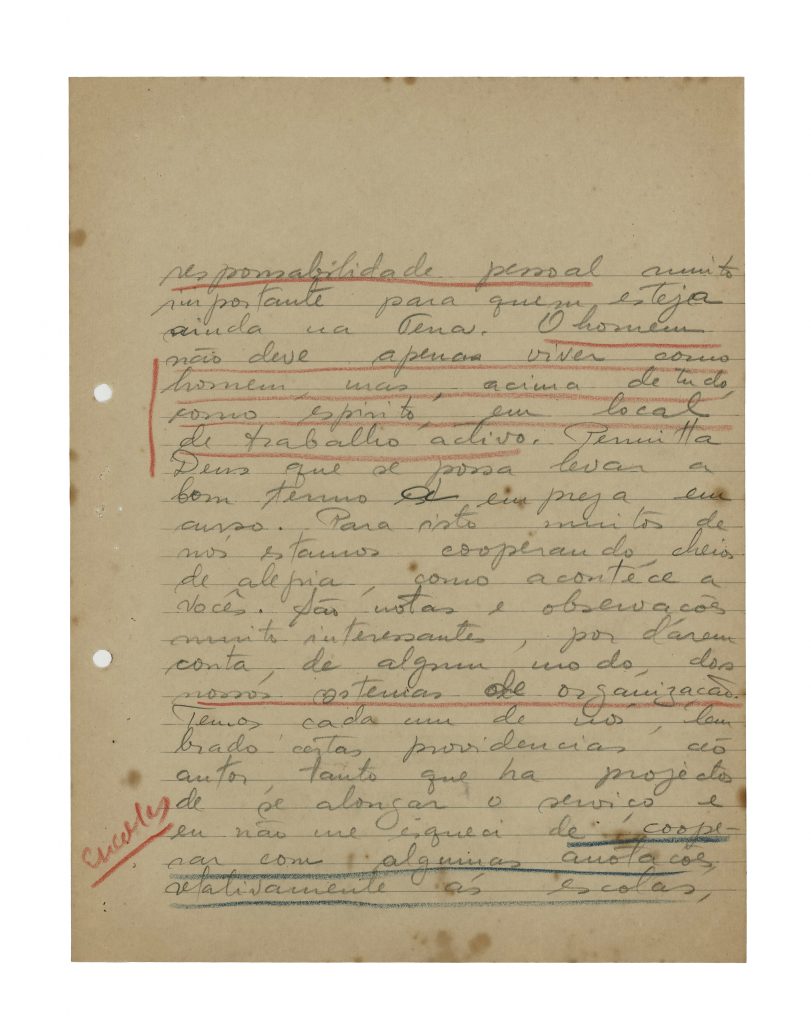 responsabilidade pessoal muito
importante para quem esteja
ainda na Terra. O homem
não deve apenas viver como
homem, mas, acima de tudo,
como espirito, em local
de trabalho activo. Permitta
Deus que se possa levar a
bom termo a empreza em
curso. Para isto muitos de
nós estamos cooperando, cheios
de alegria, como acontece a
vocês. São notas e observações
muito interessantes, por dárem
conta, de algum modo, dos
nossos systemas de organização.
Temos cada um de nós, lem
brado certas providencias ao
autor, tanto que ha projectos
de se alongar o serviço e
eu não me esqueci de coope-
rar com algumas anotações,
relativamente ás escolas,